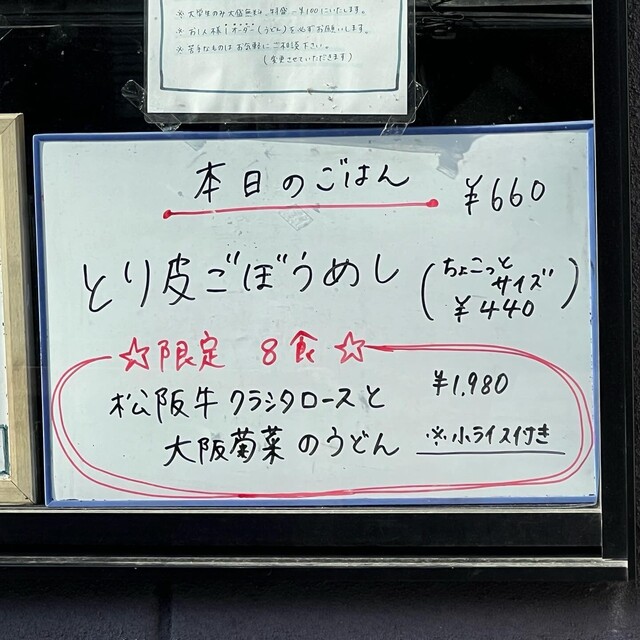 ※大学生のみ大盛無料、特盛→¥100にいたします。
※お1人様1オーダー(うどん)を必ずお願いします。
※苦手なものはお気軽にご相談下さい。
(変更させていただきます)
本日のごはん ¥660
とり皮ごぼうめし (ちょこっと
サイズ
¥440)
☆限定 8食☆
松阪牛クラシタロースと ¥1,980
大阪菊菜のうどん ※小ライス付き